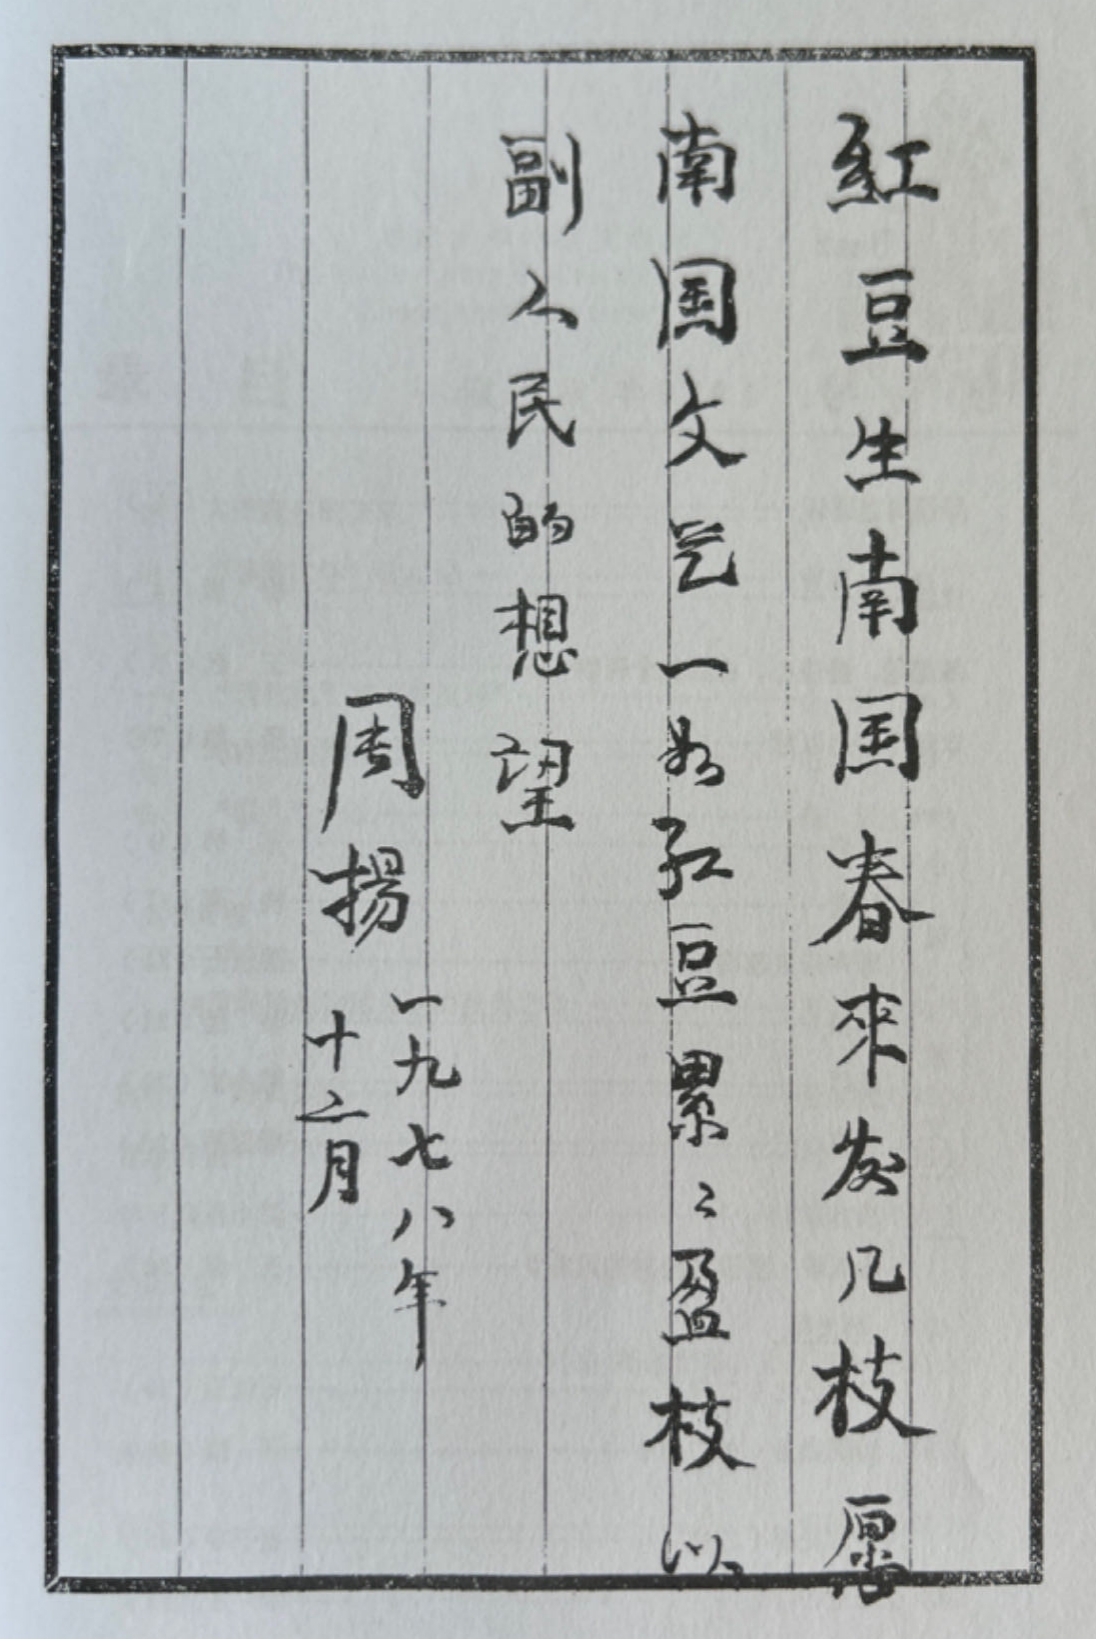 紅豆生南国春來发几枝愿
南国文艺一如红豆累〻盈枝以
副人民的想望
周揚
一九七八年
十二月